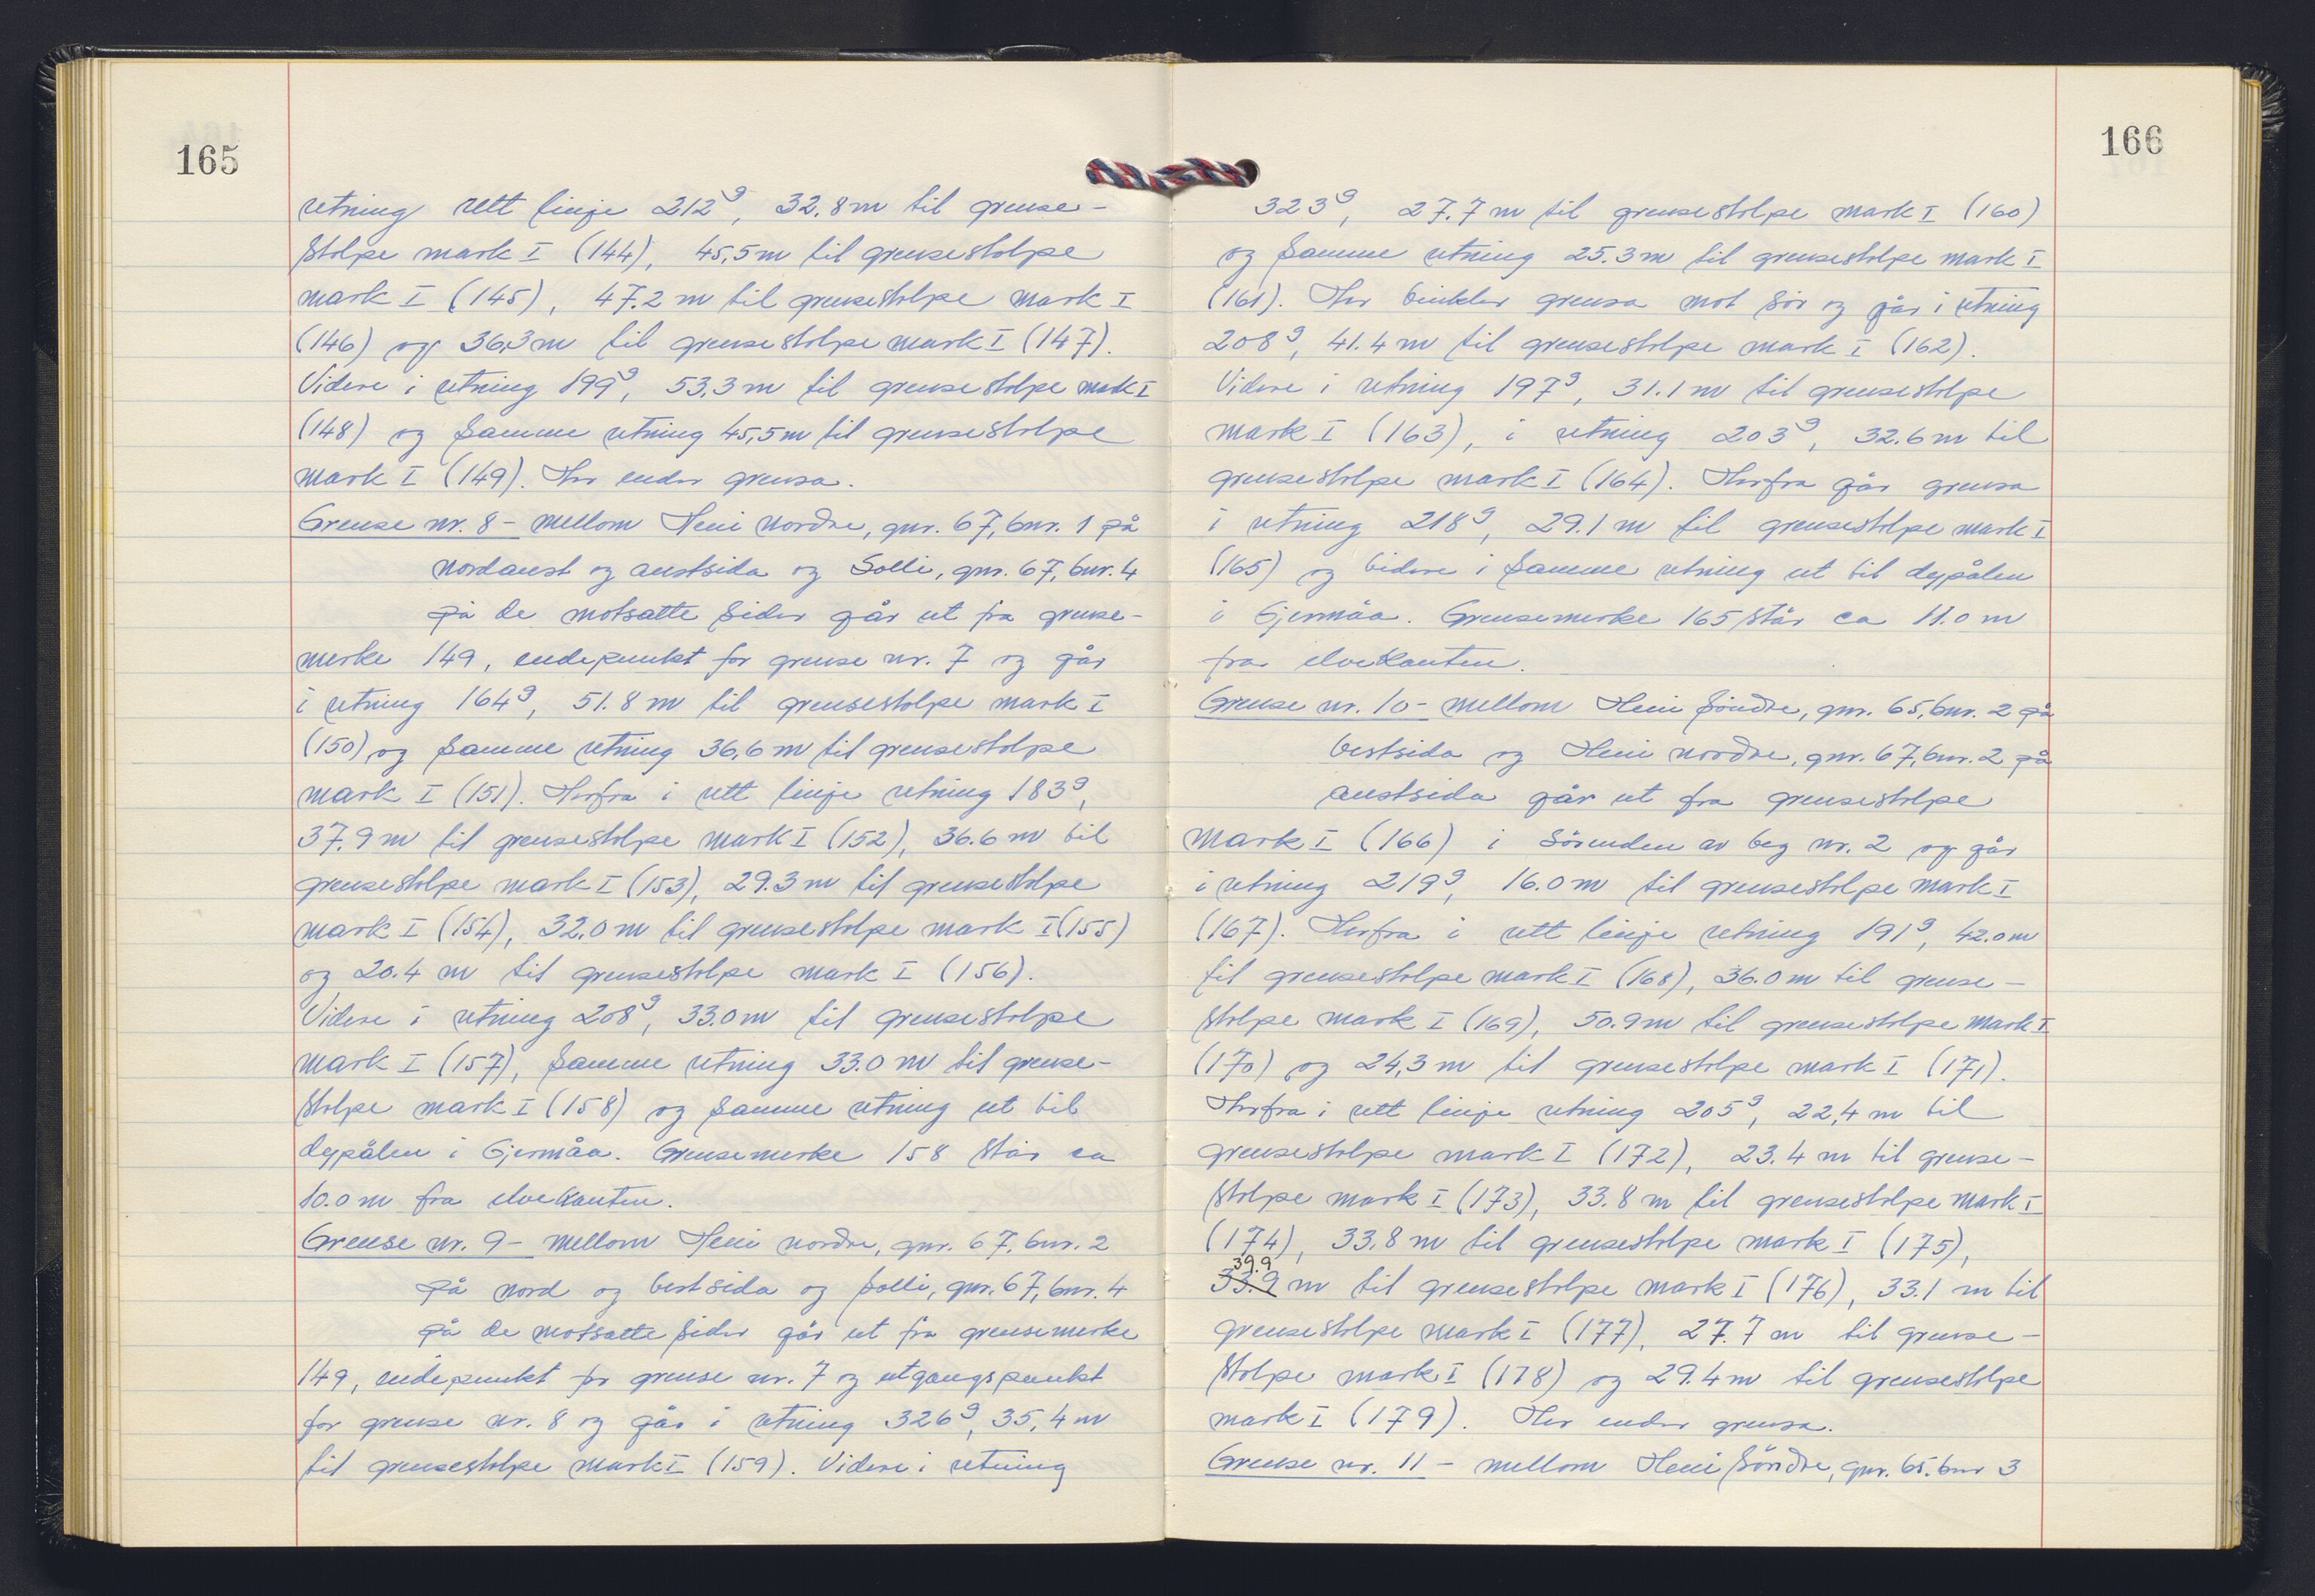 165
retning rett linje 212g, 32.8m til grense-
stolpe mark I (144), 45,5m til grensestolpe
mark I (145), 47.2 m til grensestolpe mark I
(146) og 36,3m til grensestolpe mark I (147).
Videre i retning 199g, 53,3m til grensestolpe mark I
(148) og samme retning 45,5m til grensestolpe
mark I (149). Her ender grensa.
Grense nr. 8 - mellom Heni nordre, gnr. 67, bnr. 1 på
nordaust og austsida og Solli, gnr. 67, bnr. 4
på de motsatte sider går ut fra grense-
merke 149, endepunkt for grense nr. 7 og går
i retning 164g, 51.8 m til grensestolpe mark I
(150) og samme retning 36,6 m til grensestolpe
mark I (151). Herfra i rett linje retning 183g,
37.9 m til grensestolpe mark I (152), 36.6 m til
grensestolpe mark I (153), 29.3 m til grensestolpe
mark I (154), 32.0 m til grensestolpe mark I (155)
og 20.4 m til grensestolpe mark I (156).
Videre i retning 208g, 33.0m til grensestolpe
mark I (157), samme retning 33.0 m til grense-
stolpe mark I (158) og samme retning ut til
dypålen i Gjermåa. Grensemerke 158 står ca
10.0 m fra elvekanten.
Grense nr. 9 - mellom Heni nordre, gnr. 67, bnr. 2
på nord og vestsida og Solli, gnr. 67, bnr. 4
på de motsatte sider går ut fra grensemerke
149, endepunkt for grense nr. 7 og utgangspunkt
for grense nr. 8 og går i retning 326g, 35,4 m
til grensestolpe mark I (159). Videre i retning
166
323g, 27.7 m til grensestolpe mark I (160)
og samme retning 25.3 m til grensestolpe mark I
(161). Her vinkler grensa mot sør og går i retning
208g, 41.4 m til grensestolpe mark I (162).
Videre i retning 197g, 31.1 m til grensestolpe
mark I (163), i retning 203g, 32.6 m til
grensestolpe mark I (164). Herfra går grensa
i retning 218g, 29.1 m til grensestolpe mark I
(165) og videre i samme retning ut til dypålen
i Gjermåa. Grensemerke 165 står ca 11.0 m
fra elvekanten.
Grense nr. 10 - mellom Heni søndre, gnr. 65, bnr. 2 på
vestsida og Heni nordre, gnr. 67, bnr. 2 på
austsida går ut fra grensestolpe
mark I (166) i sørenden av veg nr. 2 og går
i retning 219g, 16.0 m til grensestolpe mark I
(167). Herfra i rett linje retning 191g, 42.0 m
til grensestolpe mark I (168), 36.0 m til grense-
stolpe mark I (169), 50.9m til grensestolpe mark I
(170) og 24,3 m til grensestolpe mark I (171).
Herfra i rett linje retning 205g, 22,4 m til
grensestolpe mark I (172), 23.4 m til grense-
stolpe mark I (173), 33.8 m til grensestolpe mark I
(174), 33.8 m til grensestolpe mark I (175),
39.9
33.9 m til grensestolpe mark I (176), 33.1 m til
grensestolpe mark I (177), 27.7 m til grense-
stolpe mark I (178) og 29.4 m til grensestolpe
mark I (179). Her ender grensa.
Grense nr. 11 - mellom Heni søndre, gnr. 65. bnr 3